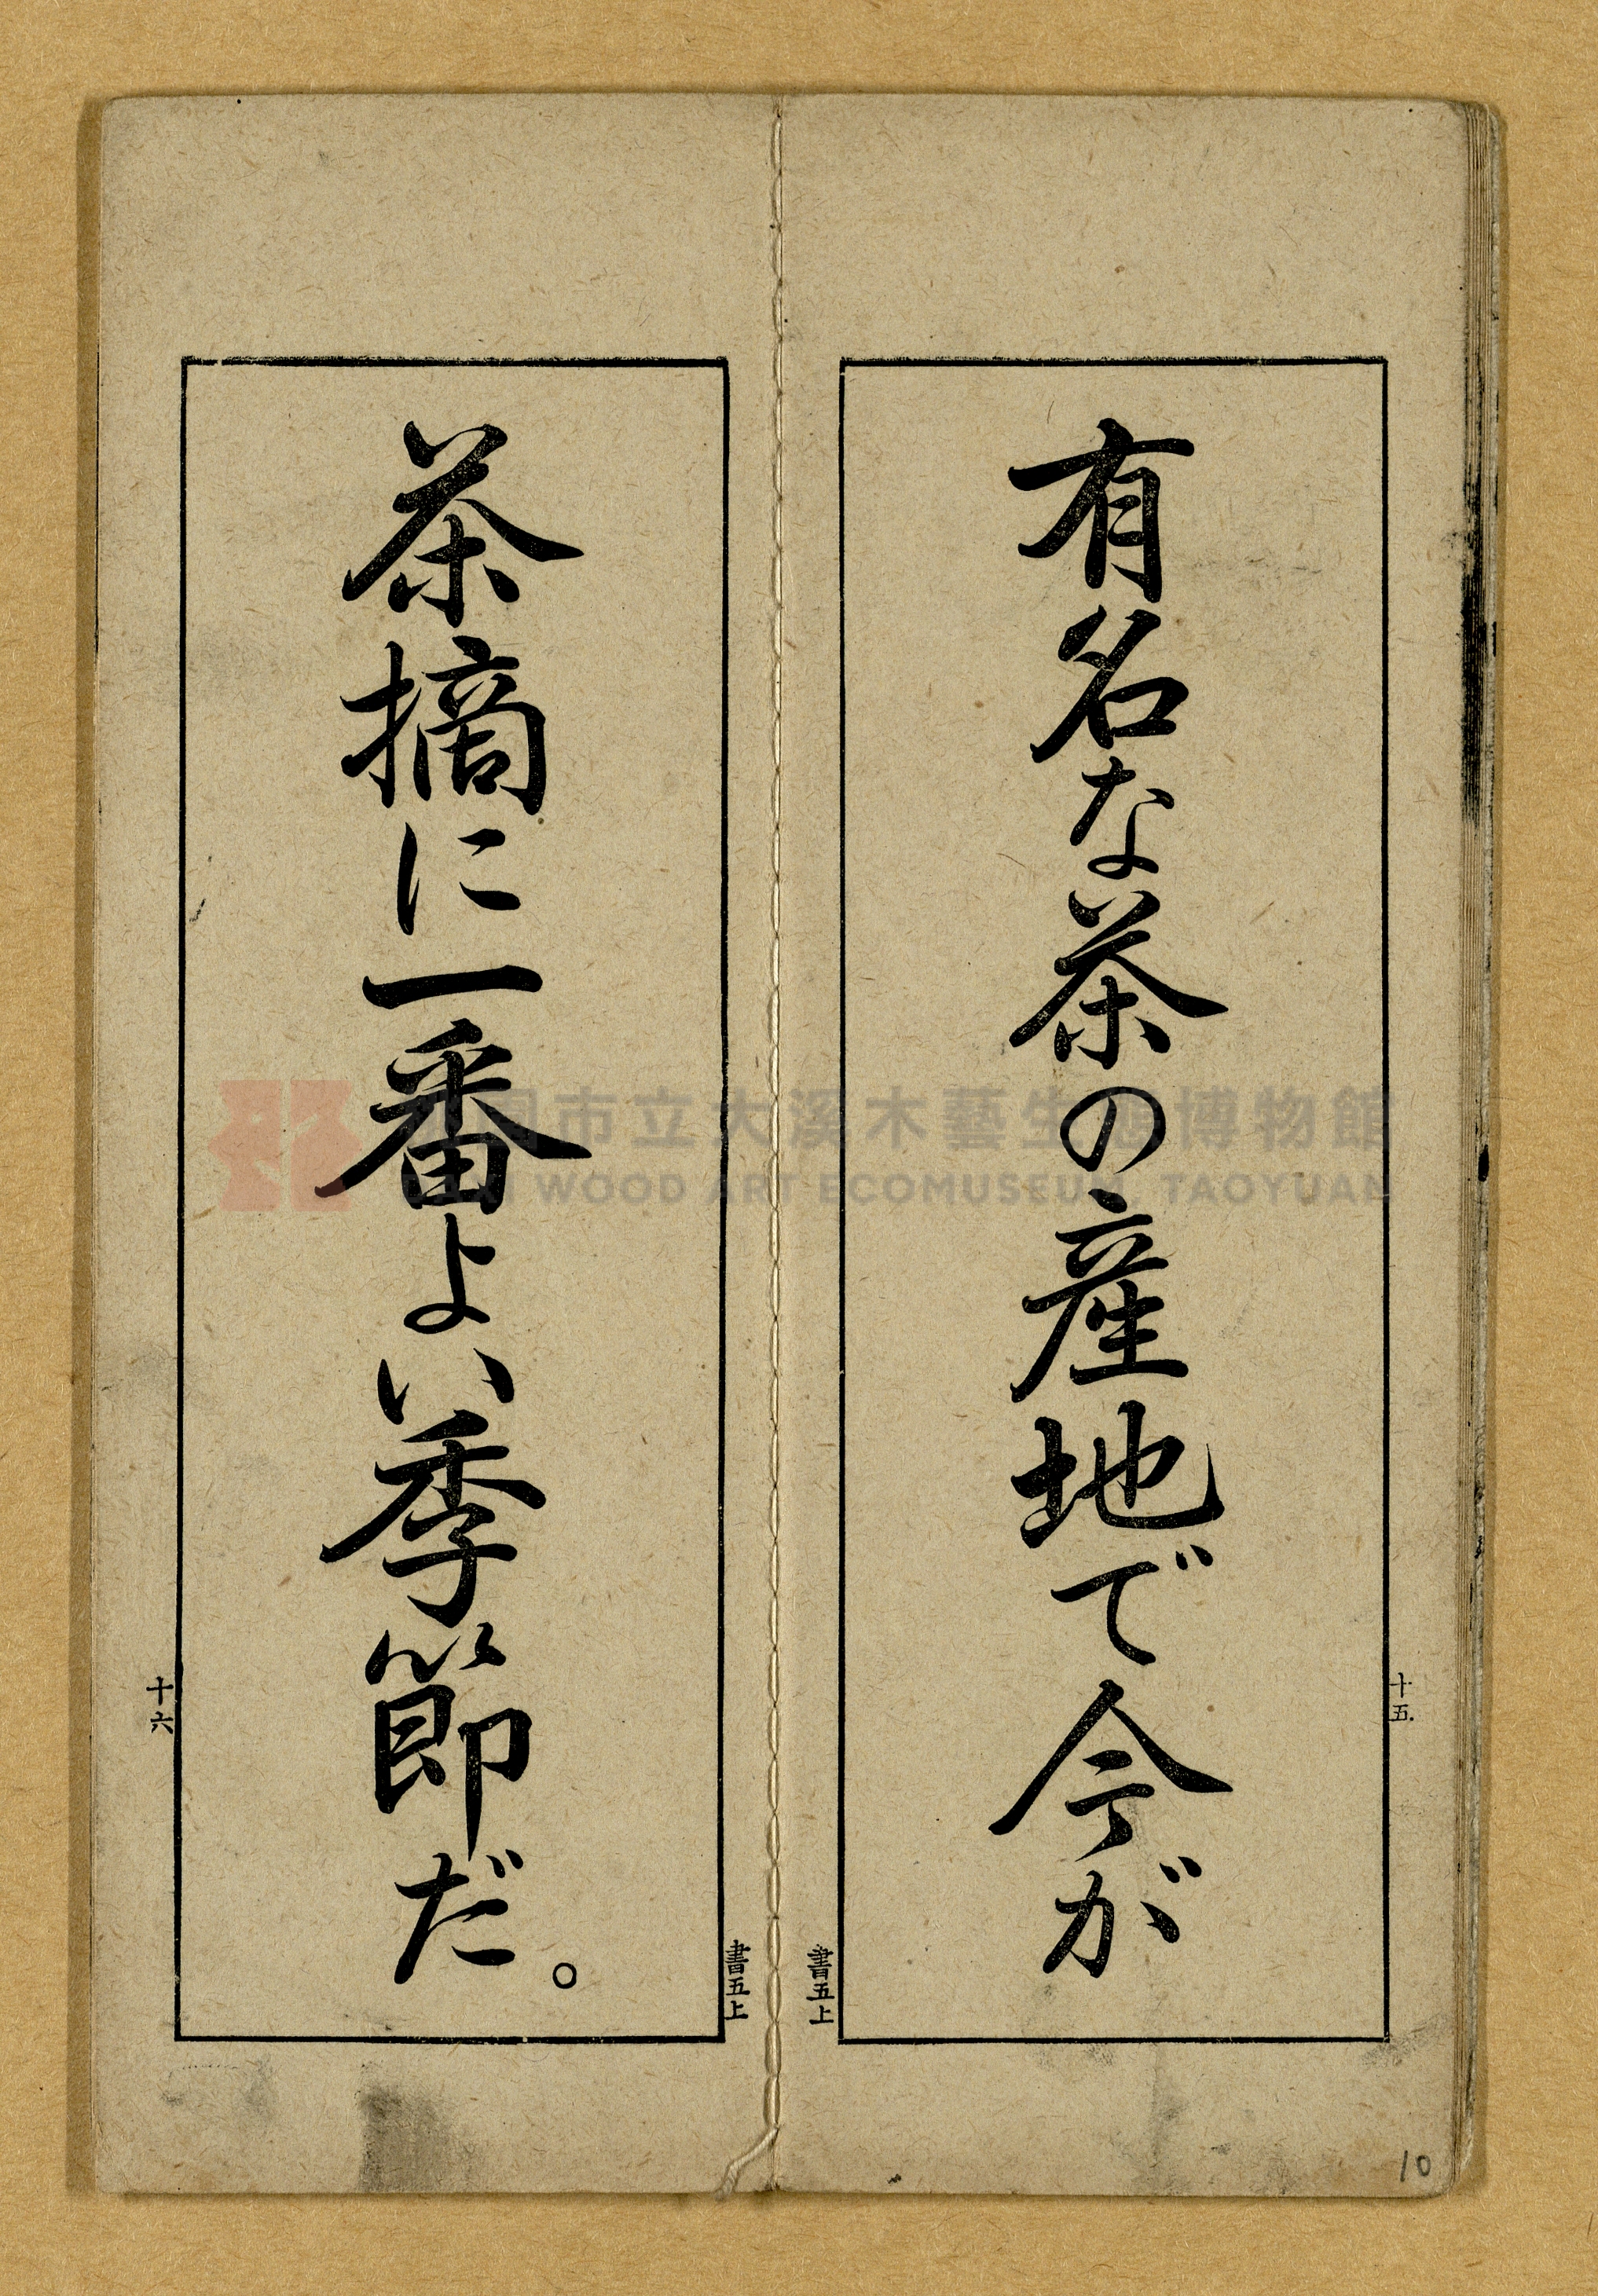 有名な茶の産地で今が
十五
書五上
茶摘に一番よい季節だ。
十六
書五上
10
園市立大溪木藝生態博物館
DAXI WOOD ART ECOMUSEUM, TAOYUAN